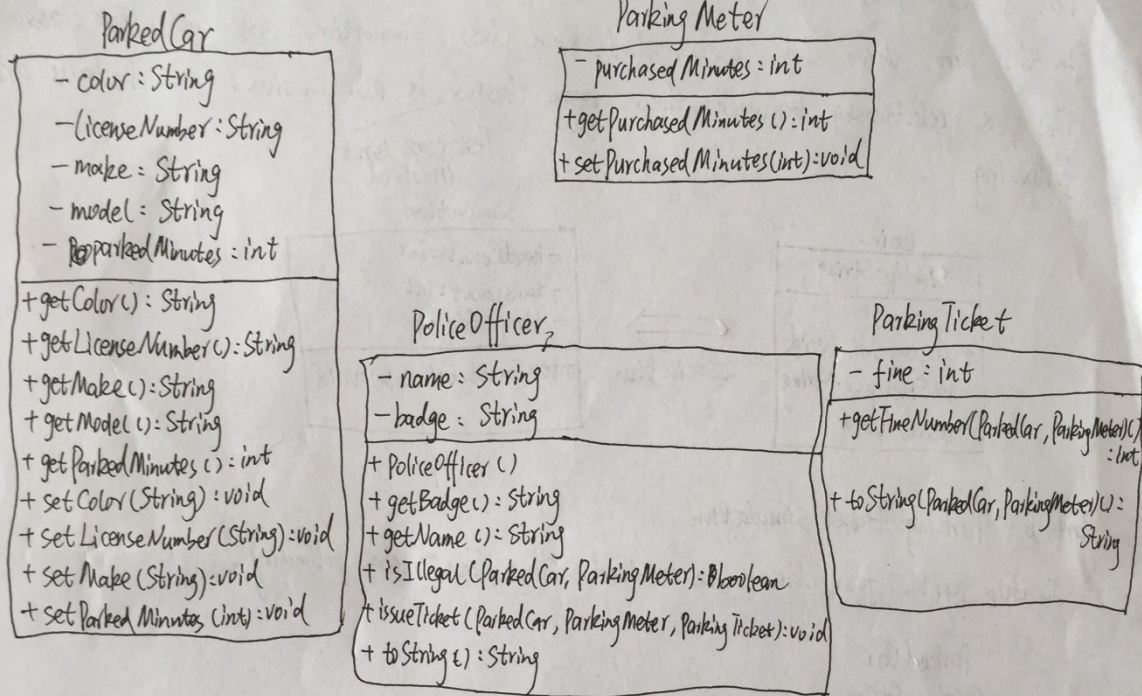 ParkedCar
- color : String
- licenseNumber : String
- make : String
- model : String
- parkedMinutes : int
+ getColor() : String
+ getLicenseNumber() : String
+ getMake() : String
+ getModel() : String
+ getParkedMinutes() : int
+ setColor(String) : void
+ setLicenseNumber(String) : void
+ setMake(String) : void
+ setParkedMinutes(int) : void
ParkingMeter
- purchasedMinutes : int
+ getPurchasedMinutes() : int
+ setPurchasedMinutes(int) : void
PoliceOfficer
- name : String
- badge : String
+ PoliceOfficer()
+ getBadge() : String
+ getName() : String
+ isIllegal(ParkedCar, ParkingMeter) : boolean
+ issueTicket(ParkedCar, ParkingMeter, ParkingTicket) : void
+ toString() : String
ParkingTicket
- fine : int
+ getFineNumber(ParkedCar, ParkingMeter)()
: int
+ toString(ParkedCar, ParkingMeter)() :
String